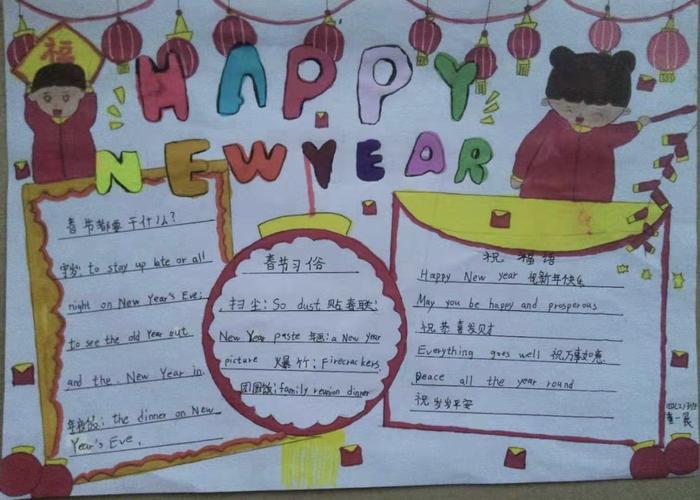 福
HAPPY
NEW YEAR
春节都要干什么?
守岁: to stay up late or all
night on New Year's Eve;
to see the old Year out
and the New Year in.
年夜饭: the dinner on New
Year's Eve.
春节习俗
扫尘: So dust 贴春联:
New Year paste 年画: a New year
picture 爆竹: Firecrackers
团圆饭: family reunion dinner
祝福语
Happy New year 祝新年快乐
May you be happy and prosperous
祝恭喜发财
Everything goes well 祝万事如意
peace all the year round
祝岁岁平安